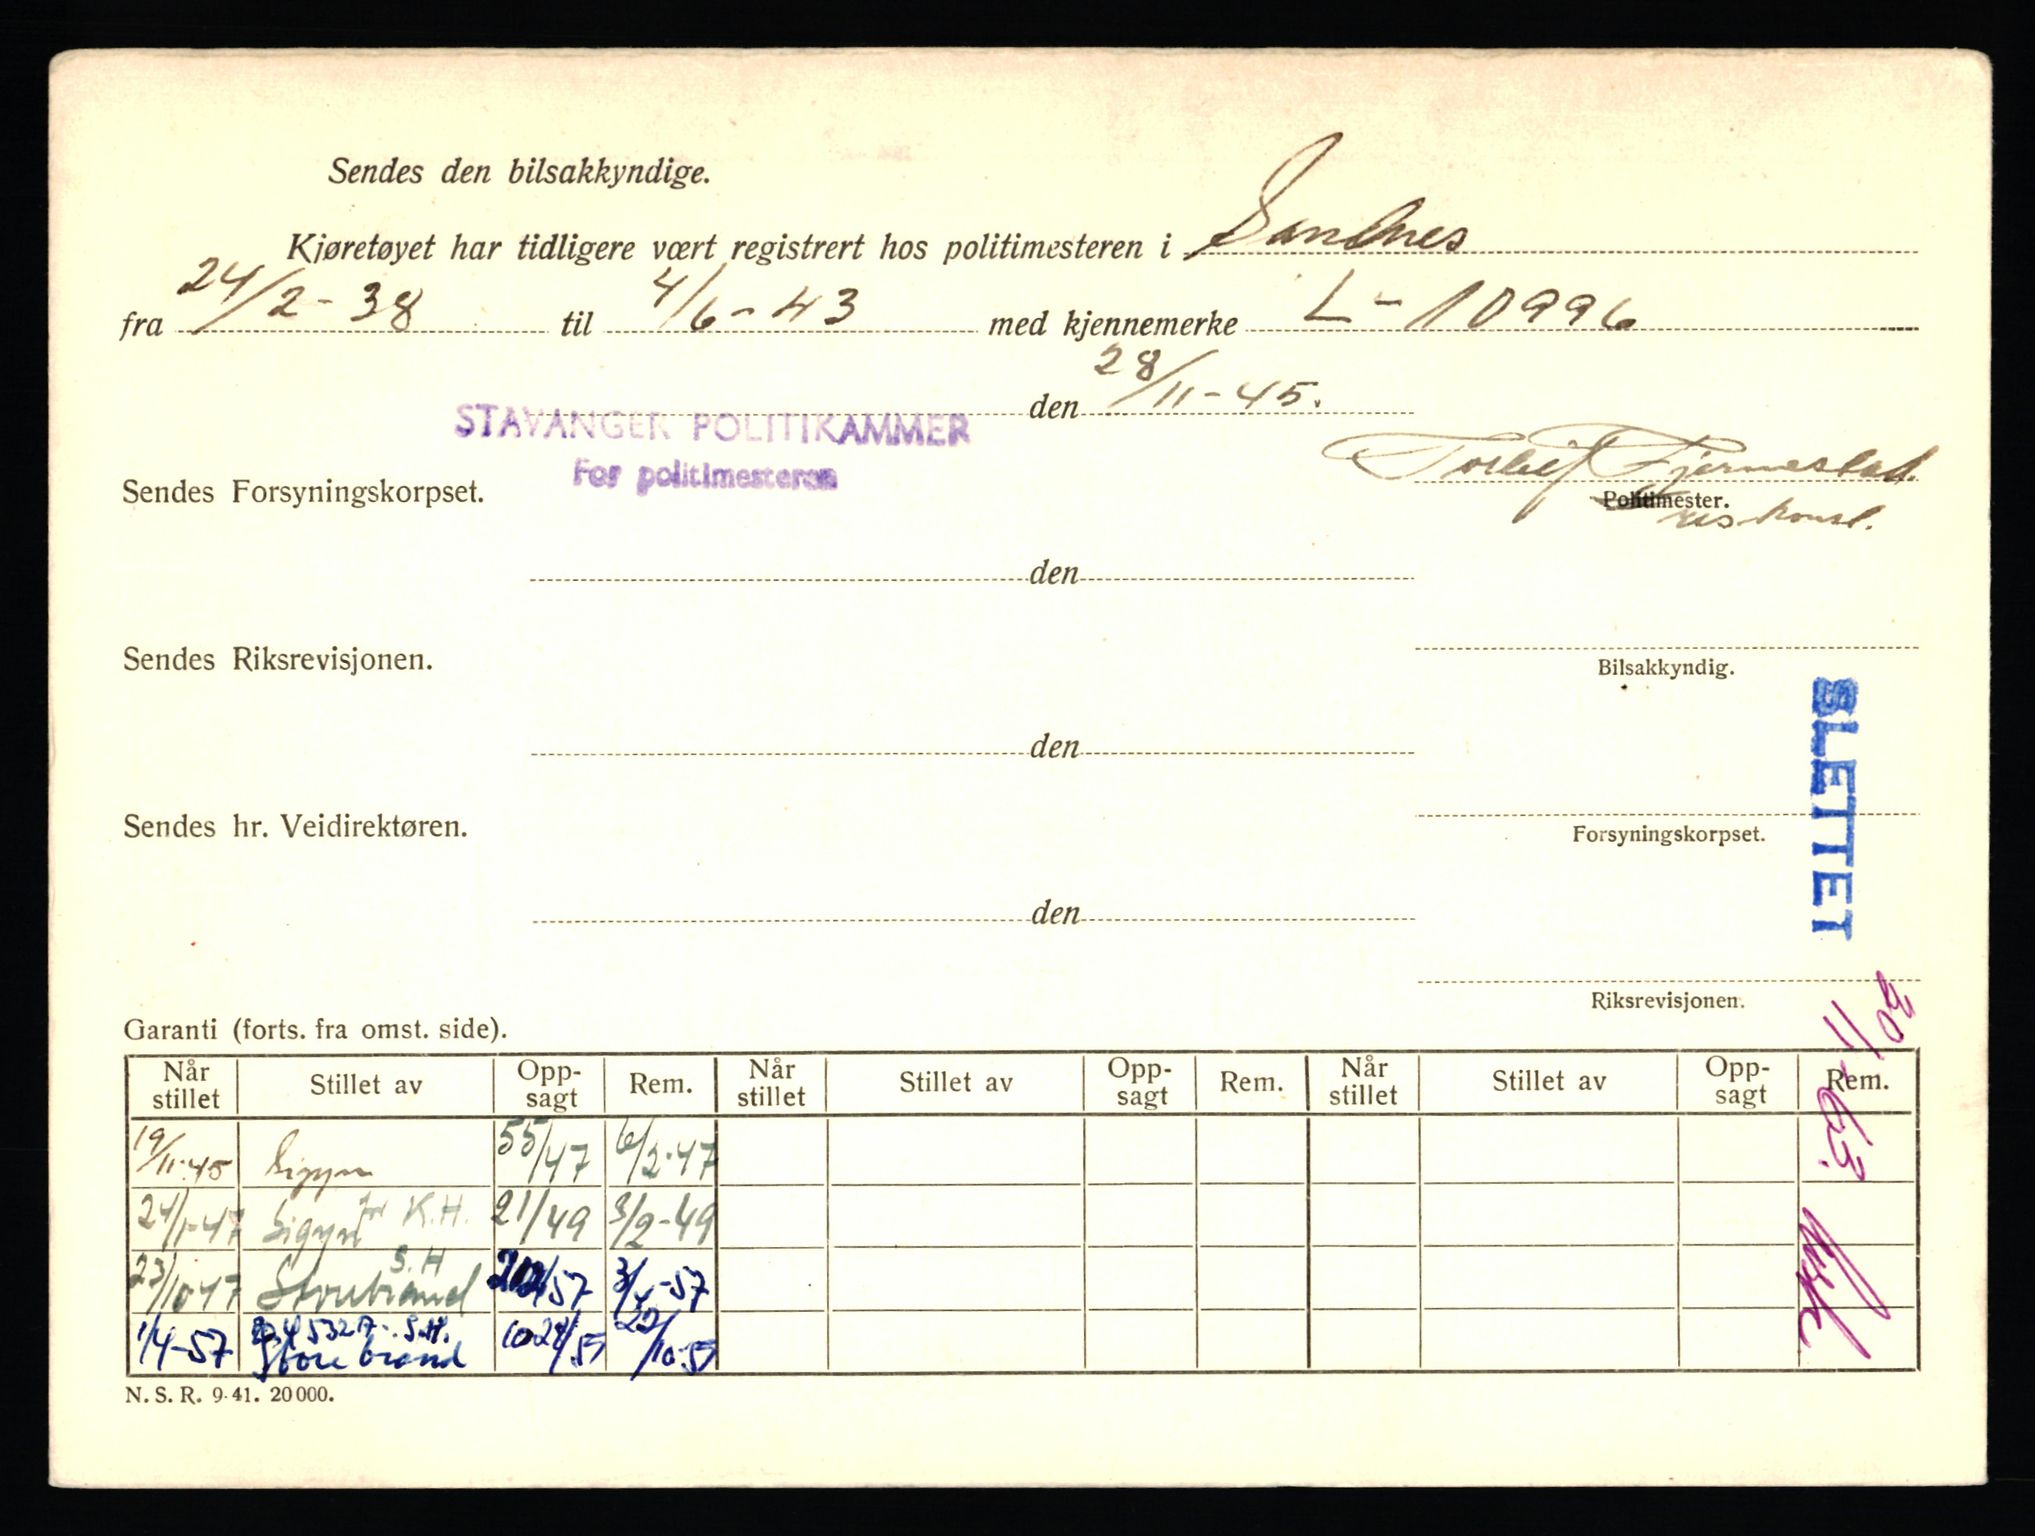 Sendes den bilsakkyndige.
Kjøretøyet har tidligere vært registrert hos politimesteren i Sandnes
fra 24/2-38 til 4/6-43 med kjennemerke L-10996
den 28/11-45.
STAVANGER POLITIKAMMER
For politimesteren
Sendes Forsyningskorpset.
Politimester.
den
Sendes Riksrevisjonen.
Bilsakkyndig.
SLETTET
den
Sendes hr. Veidirektøren.
Forsyningskorpset.
den
Riksrevisjonen.
30/11-63.
Garanti (forts. fra omst. side).
Når stillet Stillet av Opp-sagt Rem. Når stillet Stillet av Opp-sagt Rem. Når stillet Stillet av Opp-sagt Rem.
19/11-45 Sigyn 55/47 6/2-47
24/1-47 Sigyn for K.H. 21/49 3/2-49
S.H
23/10 47 Storebrand /57 3/4-57
5327 S.H.
1/4-57 Storebrand 1024/57 22/10-57
N. S. R. 9-41. 20 000.